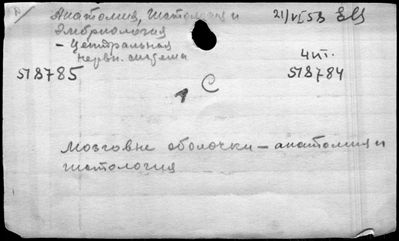 Анатомия, Гистология и 21/VI 53
Эмбриология
– Центральная
нервн. система 4 III.
518785 518784
С
Мозговые оболочки – анатомия и
гистология